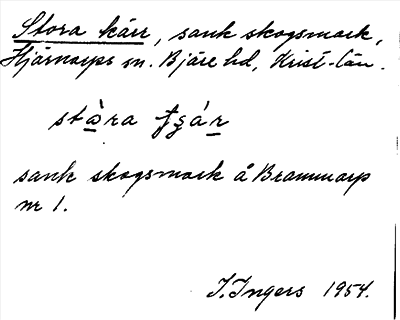 Stora kärr, sank skogsmark,
Hjärnarps sn. Bjäre hd, Krist. län.
stàra
sank skogsmark å Brammarp
nr 1.
I. Ingers 1954.